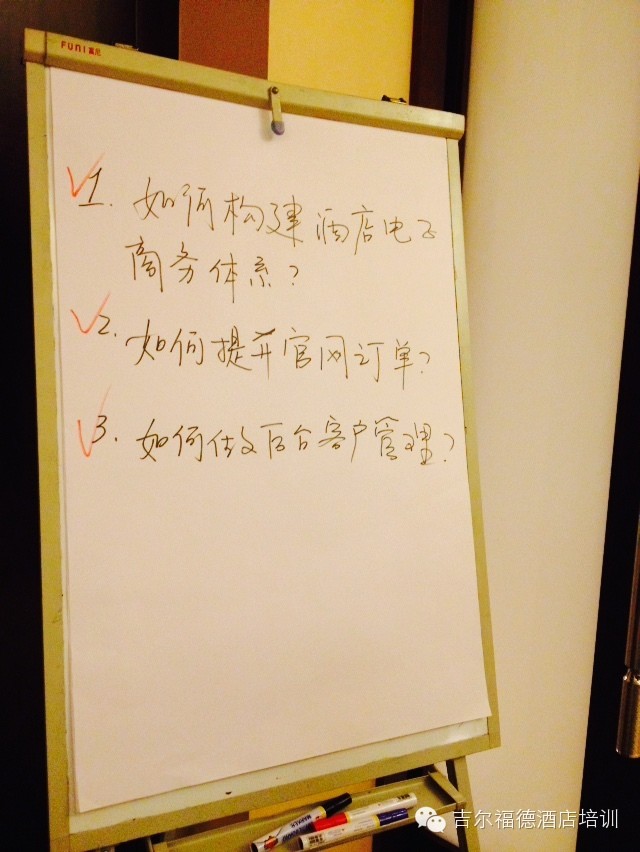 FUNI 富尼
1. 如何构建酒店电子
商务体系?
2. 如何提升官网订单?
3. 如何做后台客户管理?
MARKER
吉尔福德酒店培训